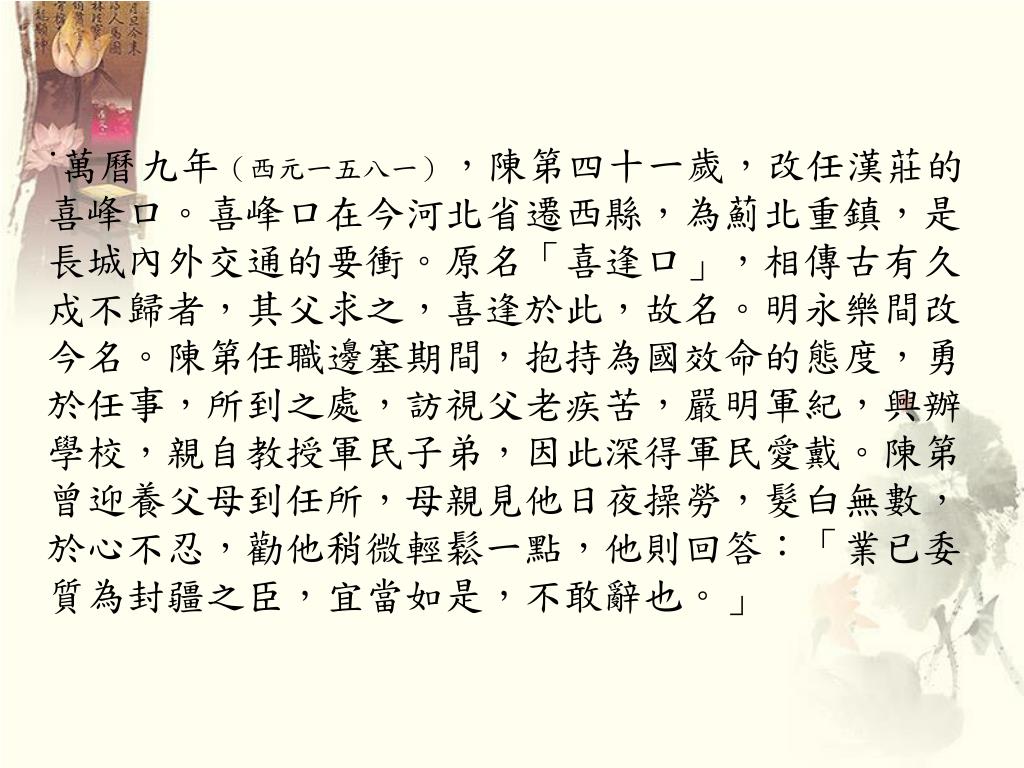 ·萬曆九年（西元一五八一），陳第四十一歲，改任漢莊的
喜峰口。喜峰口在今河北省遷西縣，為薊北重鎮，是
長城內外交通的要衝。原名「喜逢口」，相傳古有久
戍不歸者，其父求之，喜逢於此，故名。明永樂間改
今名。陳第任職邊塞期間，抱持為國效命的態度，勇
於任事，所到之處，訪視父老疾苦，嚴明軍紀，興辦
學校，親自教授軍民子弟，因此深得軍民愛戴。陳第
曾迎養父母到任所，母親見他日夜操勞，髮白無數，
於心不忍，勸他稍微輕鬆一點，他則回答：「業已委
質為封疆之臣，宜當如是，不敢辭也。」